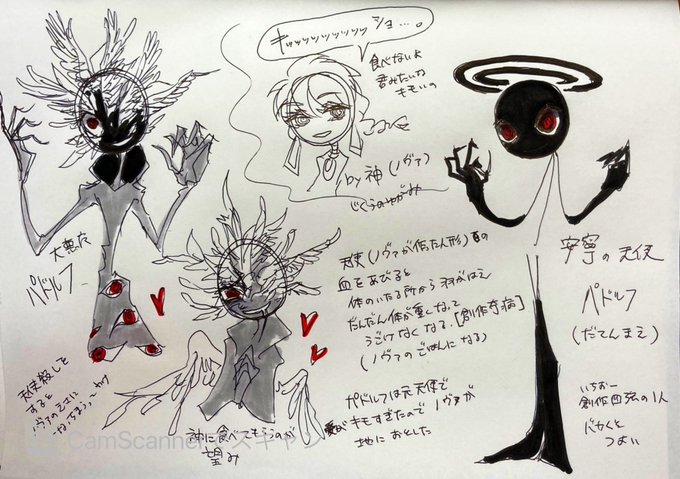 キッッッッッッッッショ…。
食べないよ
君みたいな
キモいの
by 神(ノヴァ)
大悪友
パドルフ
天使殺しを
すると
神に食べてもらうのが
望み
天使(ノヴァが作った人形)の
血をあびると
体のいたる所から羽がはえ
だんだん体が重くなって
うごけなくなる。[創作奇病]
(ノヴァのごはんになる)
パドルフは元天使で
愛がキモすぎたのでノヴァが
地におとした
安寧の天使
ペドルフ
(だてんまえ)
いちおー
創作四強の1人
バカくと
つよい
CamScannerでスキャン